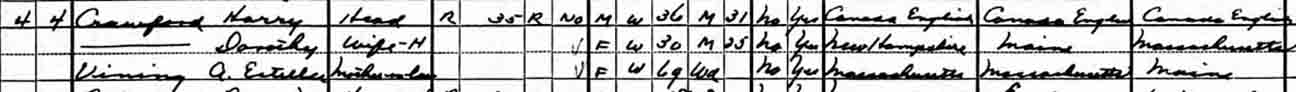 4 4 Crawford Harry Head R 35 R No M W 36 M 31 No Yes Canada English Canada English Canada English
—— Dorothy Wife-H √ F W 30 M 25 No Yes New Hampshire Maine Massachusetts
Vining A. Estelle Mother-in-law √ F W 69 Wd No Yes Massachusetts Massachusetts Maine